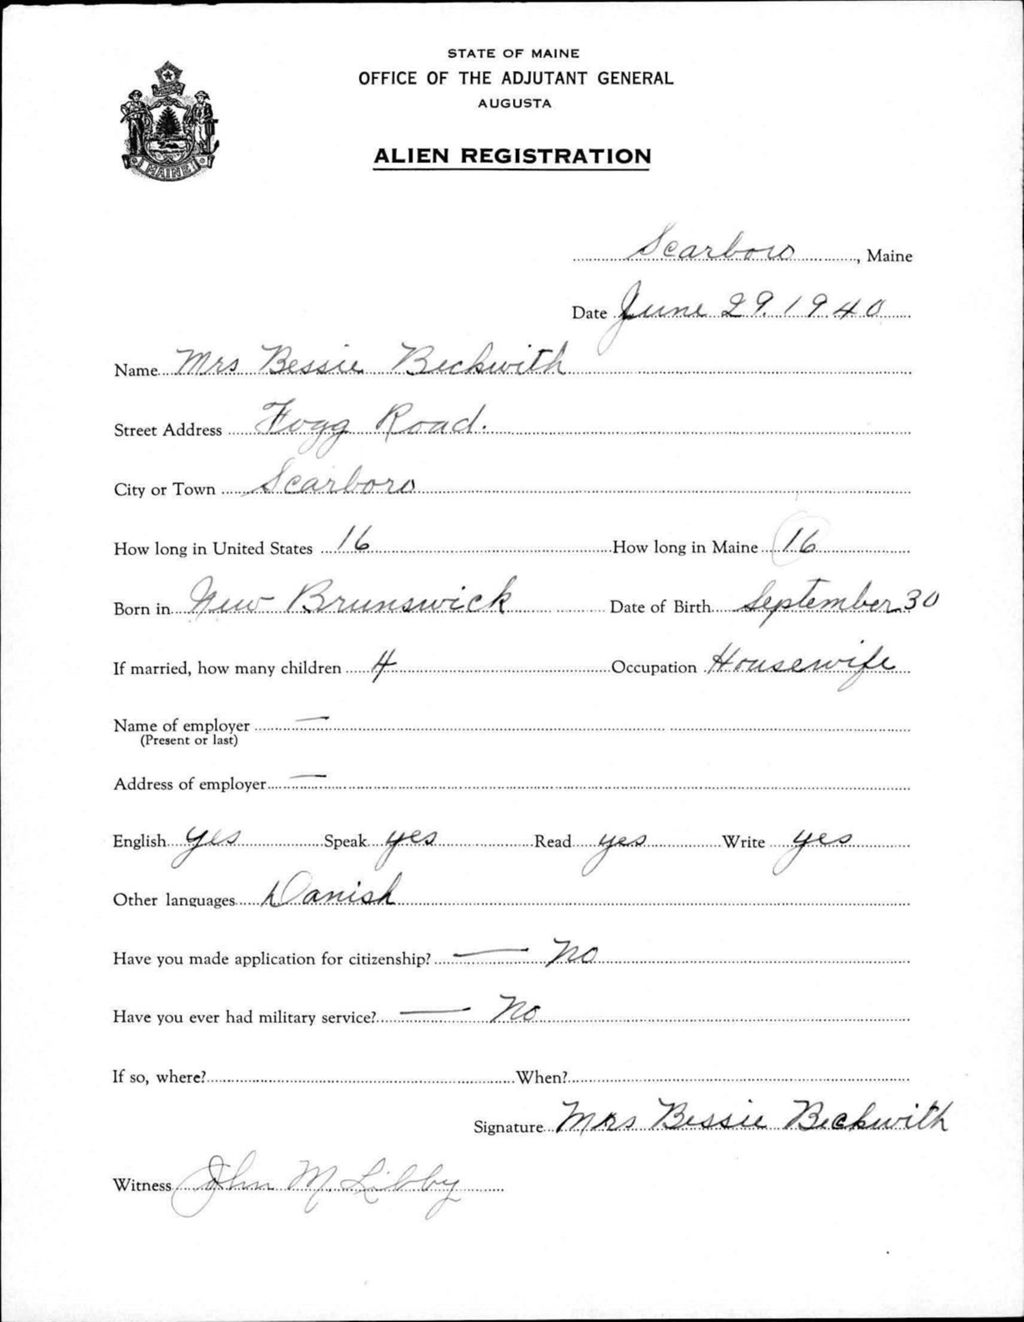 STATE OF MAINE
OFFICE OF THE ADJUTANT GENERAL
AUGUSTA
ALIEN REGISTRATION
MAINE
Scarboro, Maine
Date June 29. 1940
Name Mrs Bessie Beckwith
Street Address Fogg Road.
City or Town Scarboro
How long in United States 16 How long in Maine 16
Born in New Brunswick Date of Birth September 30
If married, how many children 4 Occupation Housewife
Name of employer —
(Present or last)
Address of employer —
English yes Speak yes Read yes Write yes
Other languages Danish
Have you made application for citizenship? — No
Have you ever had military service? — No
If so, where? When?
Signature Mrs Bessie Beckwith
Witness John M. Libby